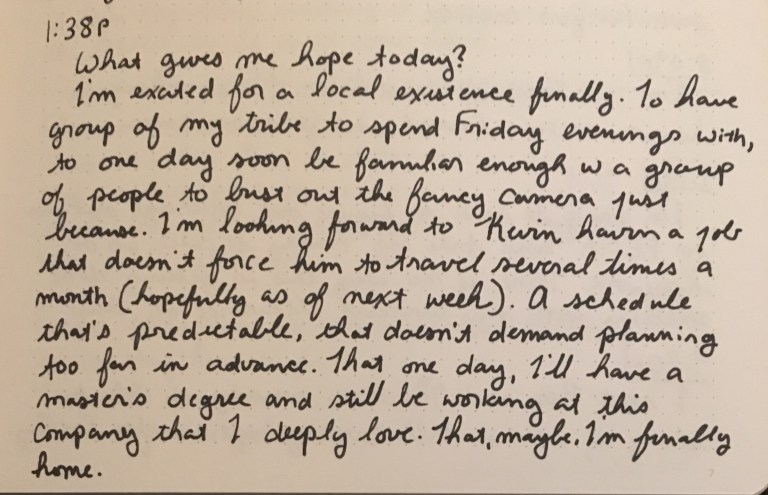 1:38P
What gives me hope today?
I'm excited for a local existence finally. To have
group of my tribe to spend Friday evenings with,
to one day soon be familiar enough w a group
of people to bust out the fancy camera just
because. I'm looking forward to Kevin havin a job
that doesn't force him to travel several times a
month (hopefully as of next week). A schedule
that's predictable, that doesn't demand planning
too far in advance. That one day, I'll have a
master's degree and still be working at this
company that I deeply love. That, maybe, I'm finally
home.